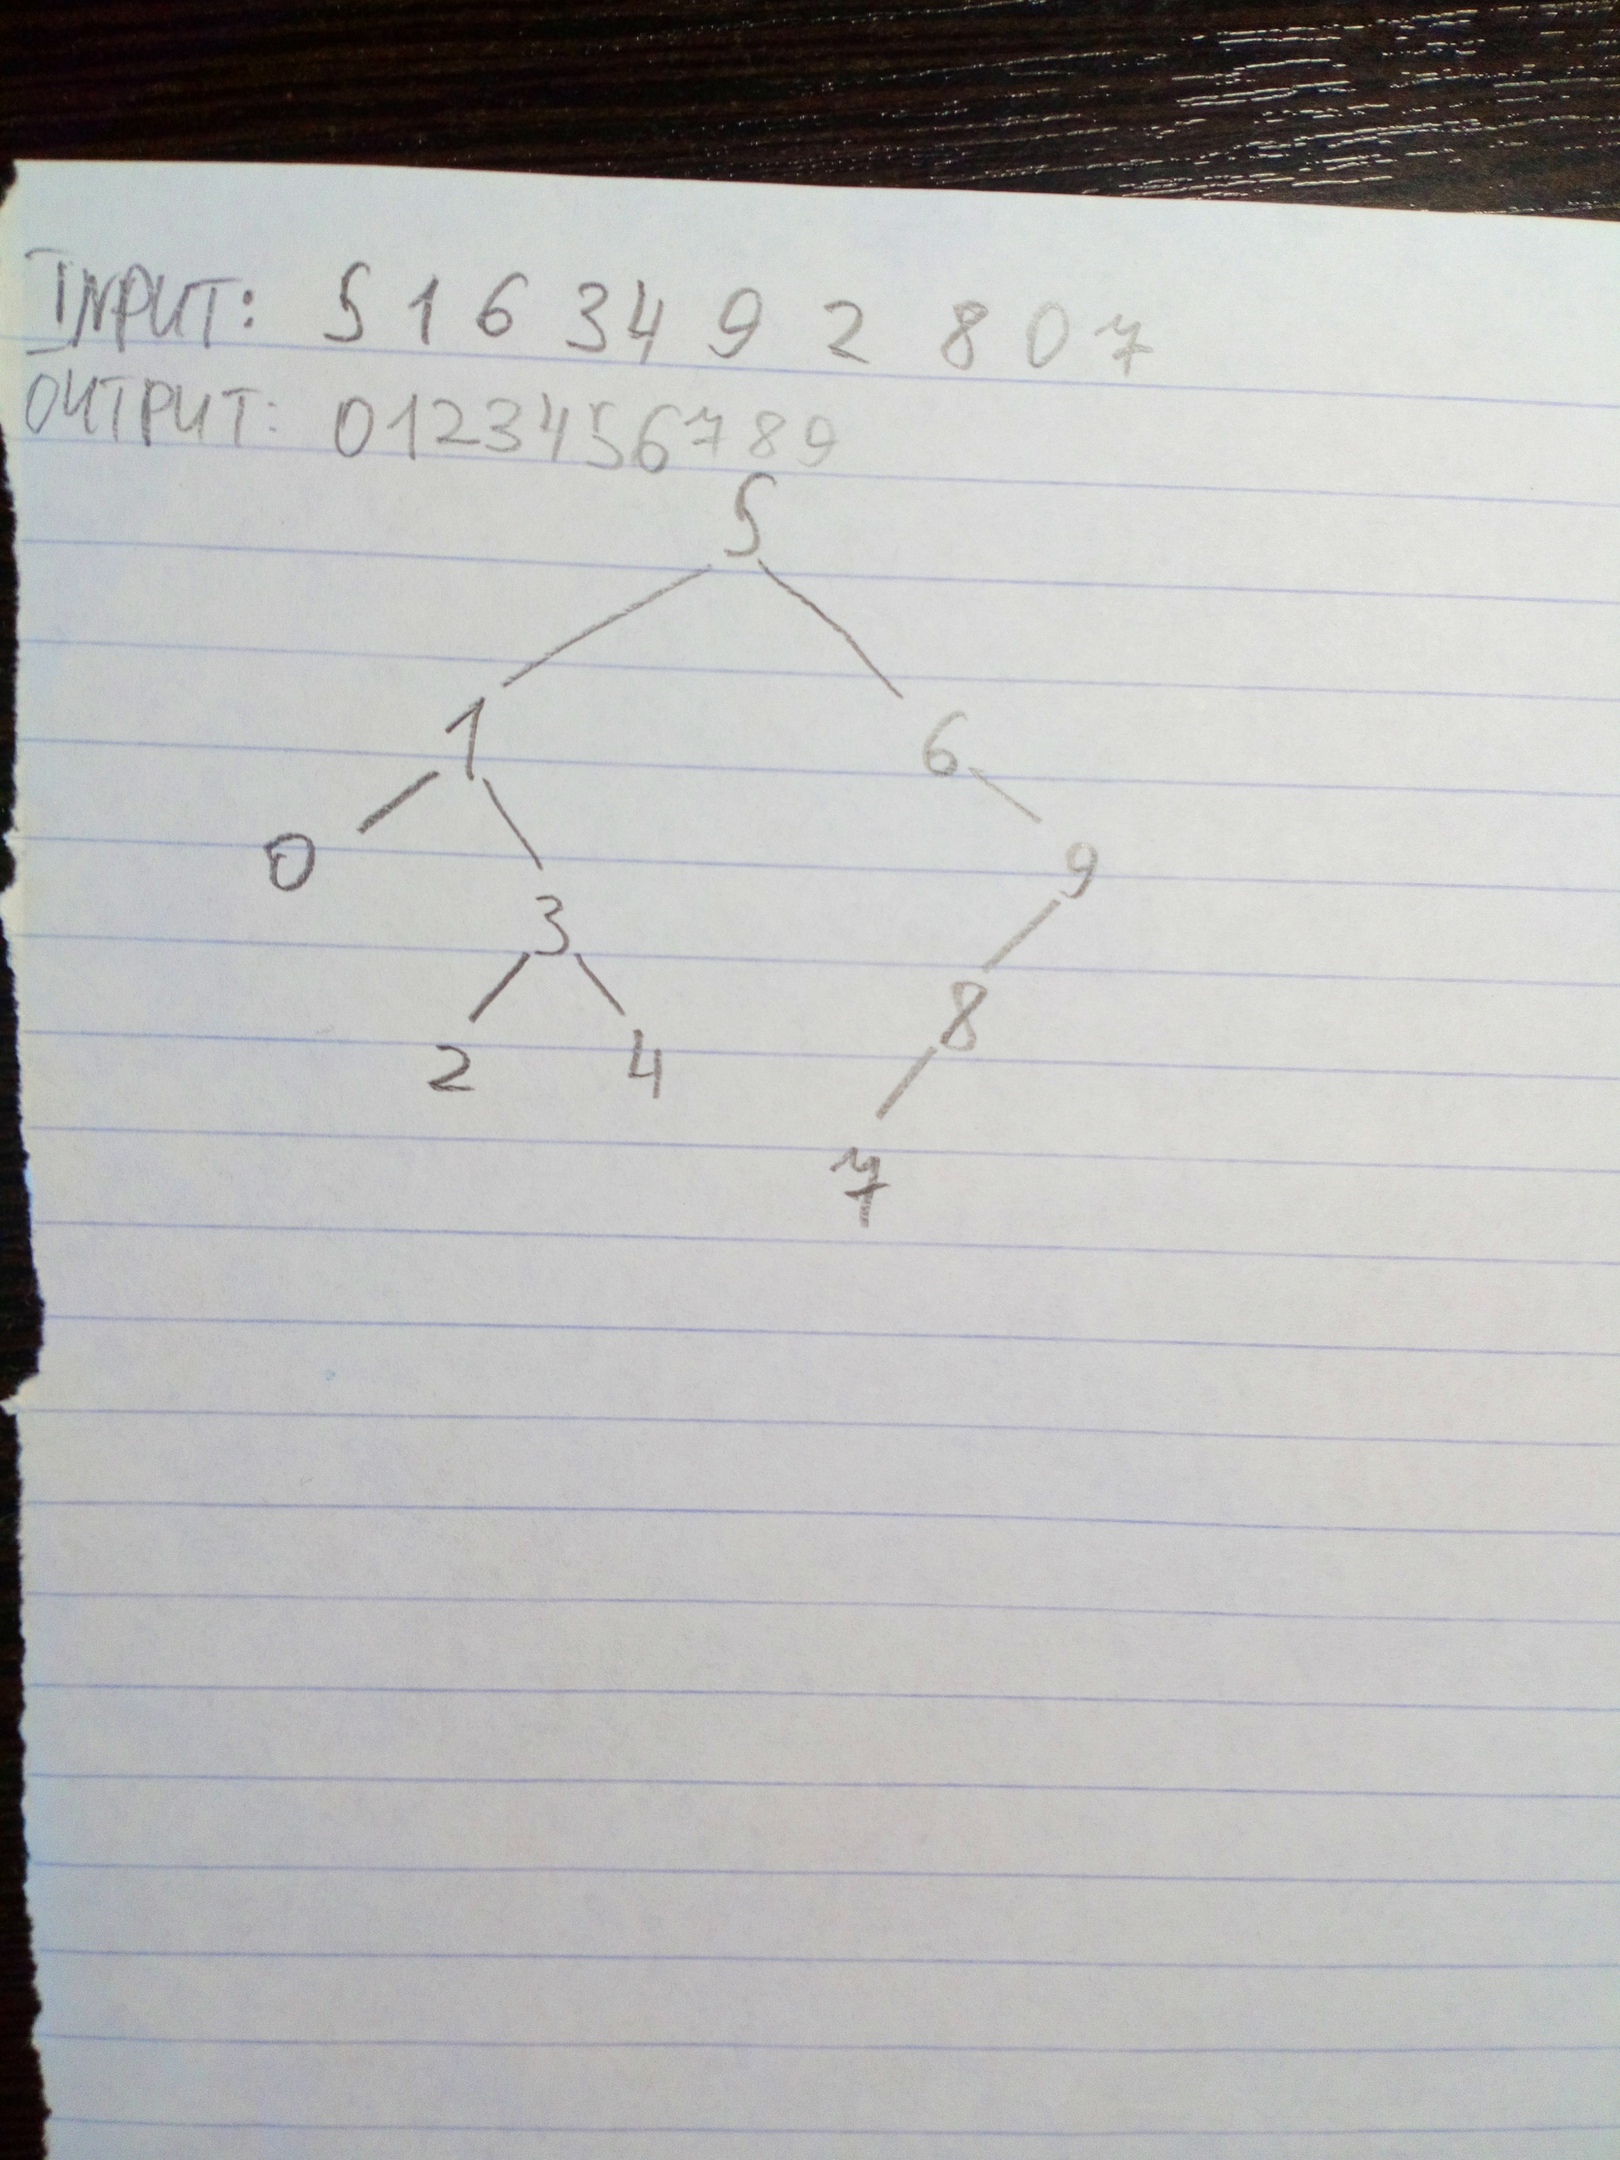 INPUT: 5 1 6 3 4 9 2 8 0 7
OUTPUT: 0123456789
5
1 6
0 9
3
8
2 4
7